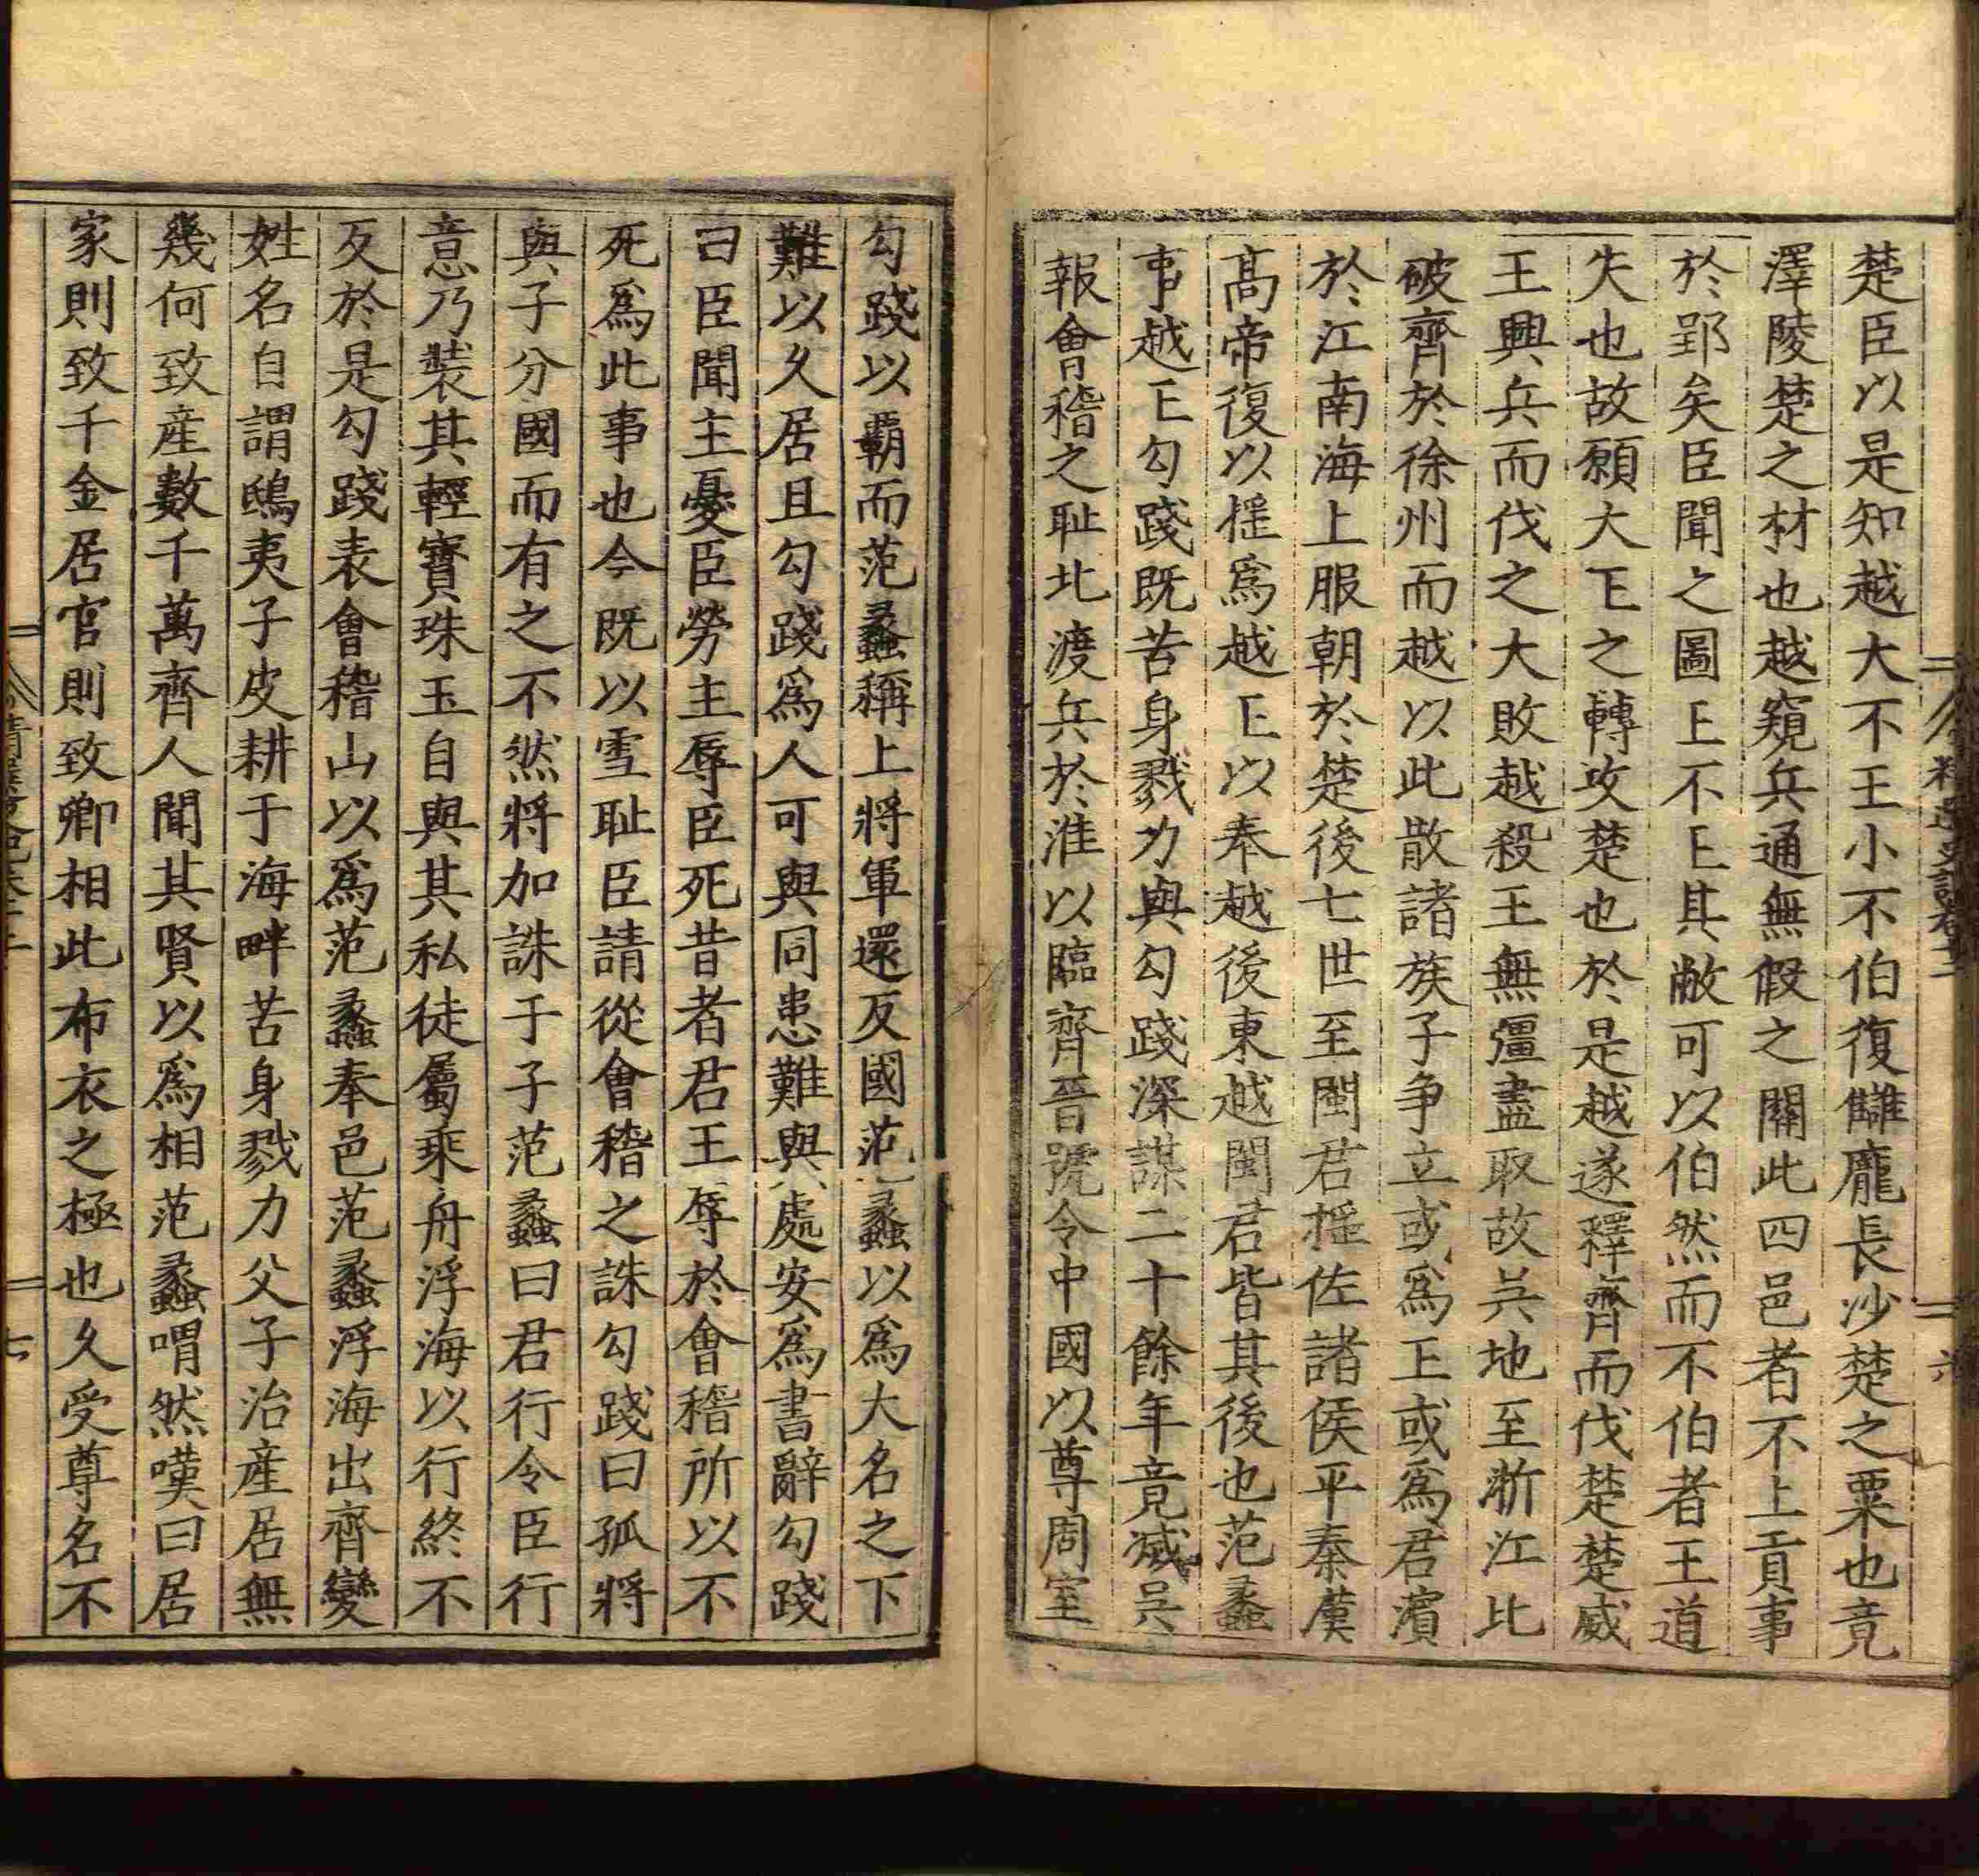 楚臣以是知越大不王小不伯復讎龐長沙楚之粟也竟
澤陵楚之材也越窺兵通無假之關此四邑者不上貢事
於郢矣臣聞之圖王不王其敝可以伯然而不伯者王道
失也故願大王之轉攻楚也於是越遂釋齊而伐楚楚威
王興兵而伐之大敗越殺王無彊盡取故吳地至浙江北
破齊於徐州而越以此散諸族子爭立或爲王或爲君濱
於江南海上服朝於楚後七世至閩君搖佐諸侯平秦漢
高帝復以搖爲越王以奉越後東越閩君皆其後也范蠡
事越王勾踐既苦身戮力與勾踐深謀二十餘年竟滅吳
報會稽之耻北渡兵於淮以臨齊晉號令中國以尊周室
六
勾踐以霸而范蠡稱上將軍還反國范蠡以爲大名之下
難以久居且勾踐爲人可與同患難與處安爲書辭勾踐
曰臣聞主憂臣勞主辱臣死昔者君王辱於會稽所以不
死爲此事也今既以雪耻臣請從會稽之誅勾踐曰孤將
與子分國而有之不然將加誅于子范蠡曰君行令臣行
意乃裝其輕寶珠玉自與其私徒屬乘舟浮海以行終不
反於是勾踐表會稽山以爲范蠡奉邑范蠡浮海出齊變
姓名自謂鴟夷子皮耕于海畔苦身戮力父子治産居無
幾何致産數千萬齊人聞其賢以爲相范蠡喟然嘆曰居
家則致千金居官則致卿相此布衣之極也久受尊名不
七